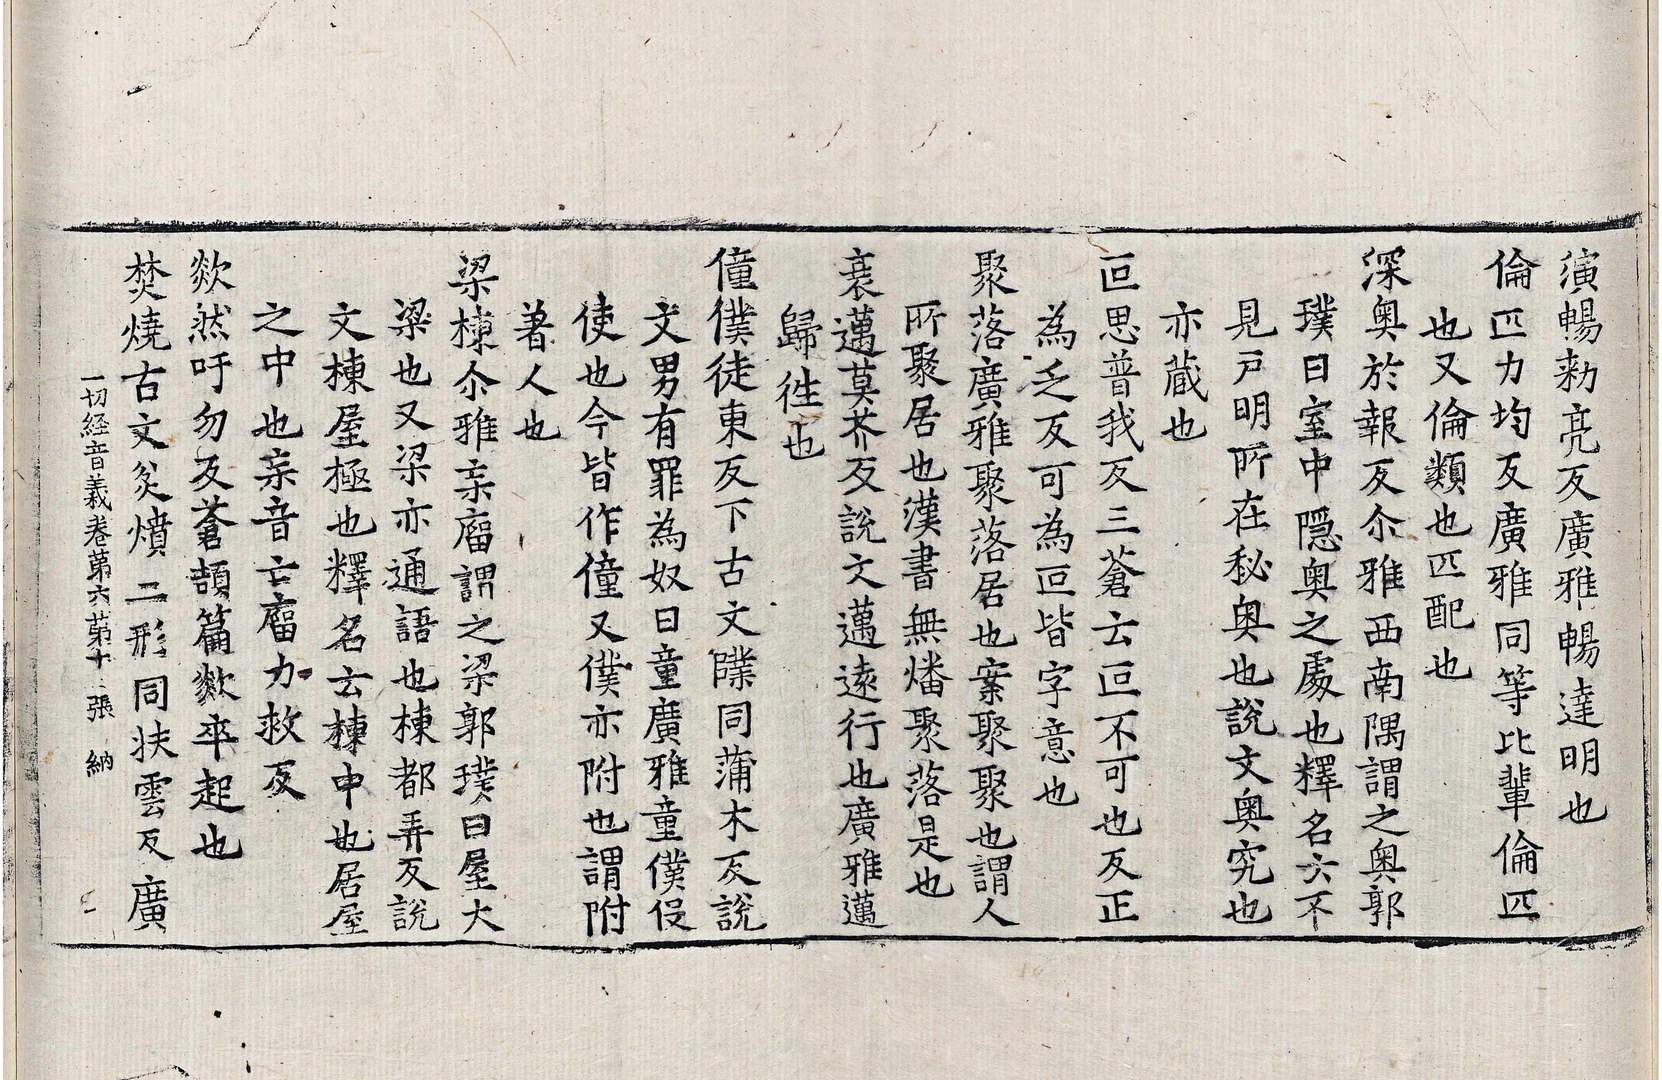 演暢勑亮反廣雅暢達明也
倫匹力均反廣雅同等比輩倫匹
也又倫類也匹配也
深奧於報反尒雅西南隅謂之奧郭
璞曰室中隱奧之處也釋名云不
見戶明所在秘奧也說文奧究也
亦蔵也
叵思普我反三蒼云叵不可也反正
為乏反可為叵皆字意也
聚落廣雅聚落居也案聚聚也謂人
所聚居也漢書無燔聚落是也
衰邁莫芥反說文邁遠行也廣雅邁
歸徃也
僮僕徒東反下古文䑑同蒲木反說
文男有罪為奴曰童廣雅童僕伇
使也今皆作僮又僕亦附也謂附
著人也
梁棟尒雅杗廇謂之梁郭璞曰屋大
梁也又梁亦通語也棟都弄反說
文棟屋極也釋名云棟中也居屋
之中也杗音亡廇力救反
欻然吁勿反蒼頡篇欻卒起也
焚燒古文炃燌二形同扶雲反廣
一切経音義卷苐六苐十二張 納